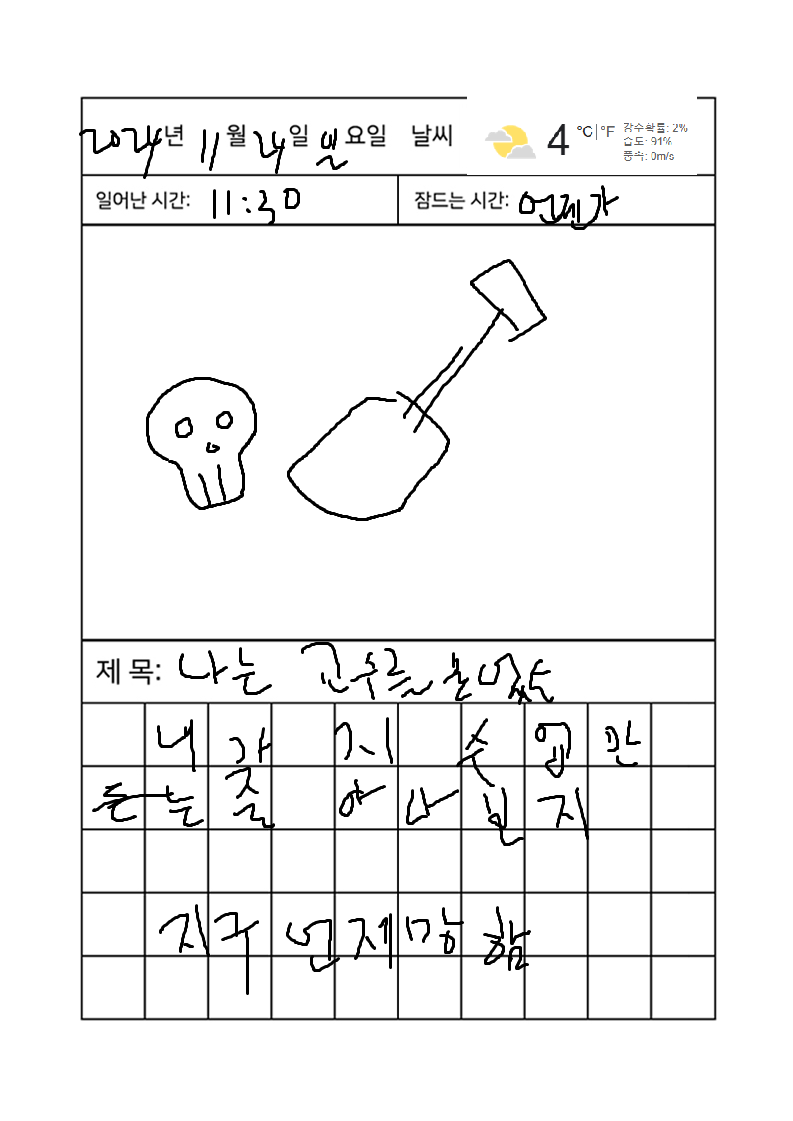 2024년 11월 24일 일요일 날씨 4 °C|°F 강수확률: 2%
습도: 91%
풍속: 0m/s
일어난 시간: 11:30 잠드는 시간: 언젠가
제 목: 나는
내가 지 수업만
드는줄 아나 지
지구 언제망함